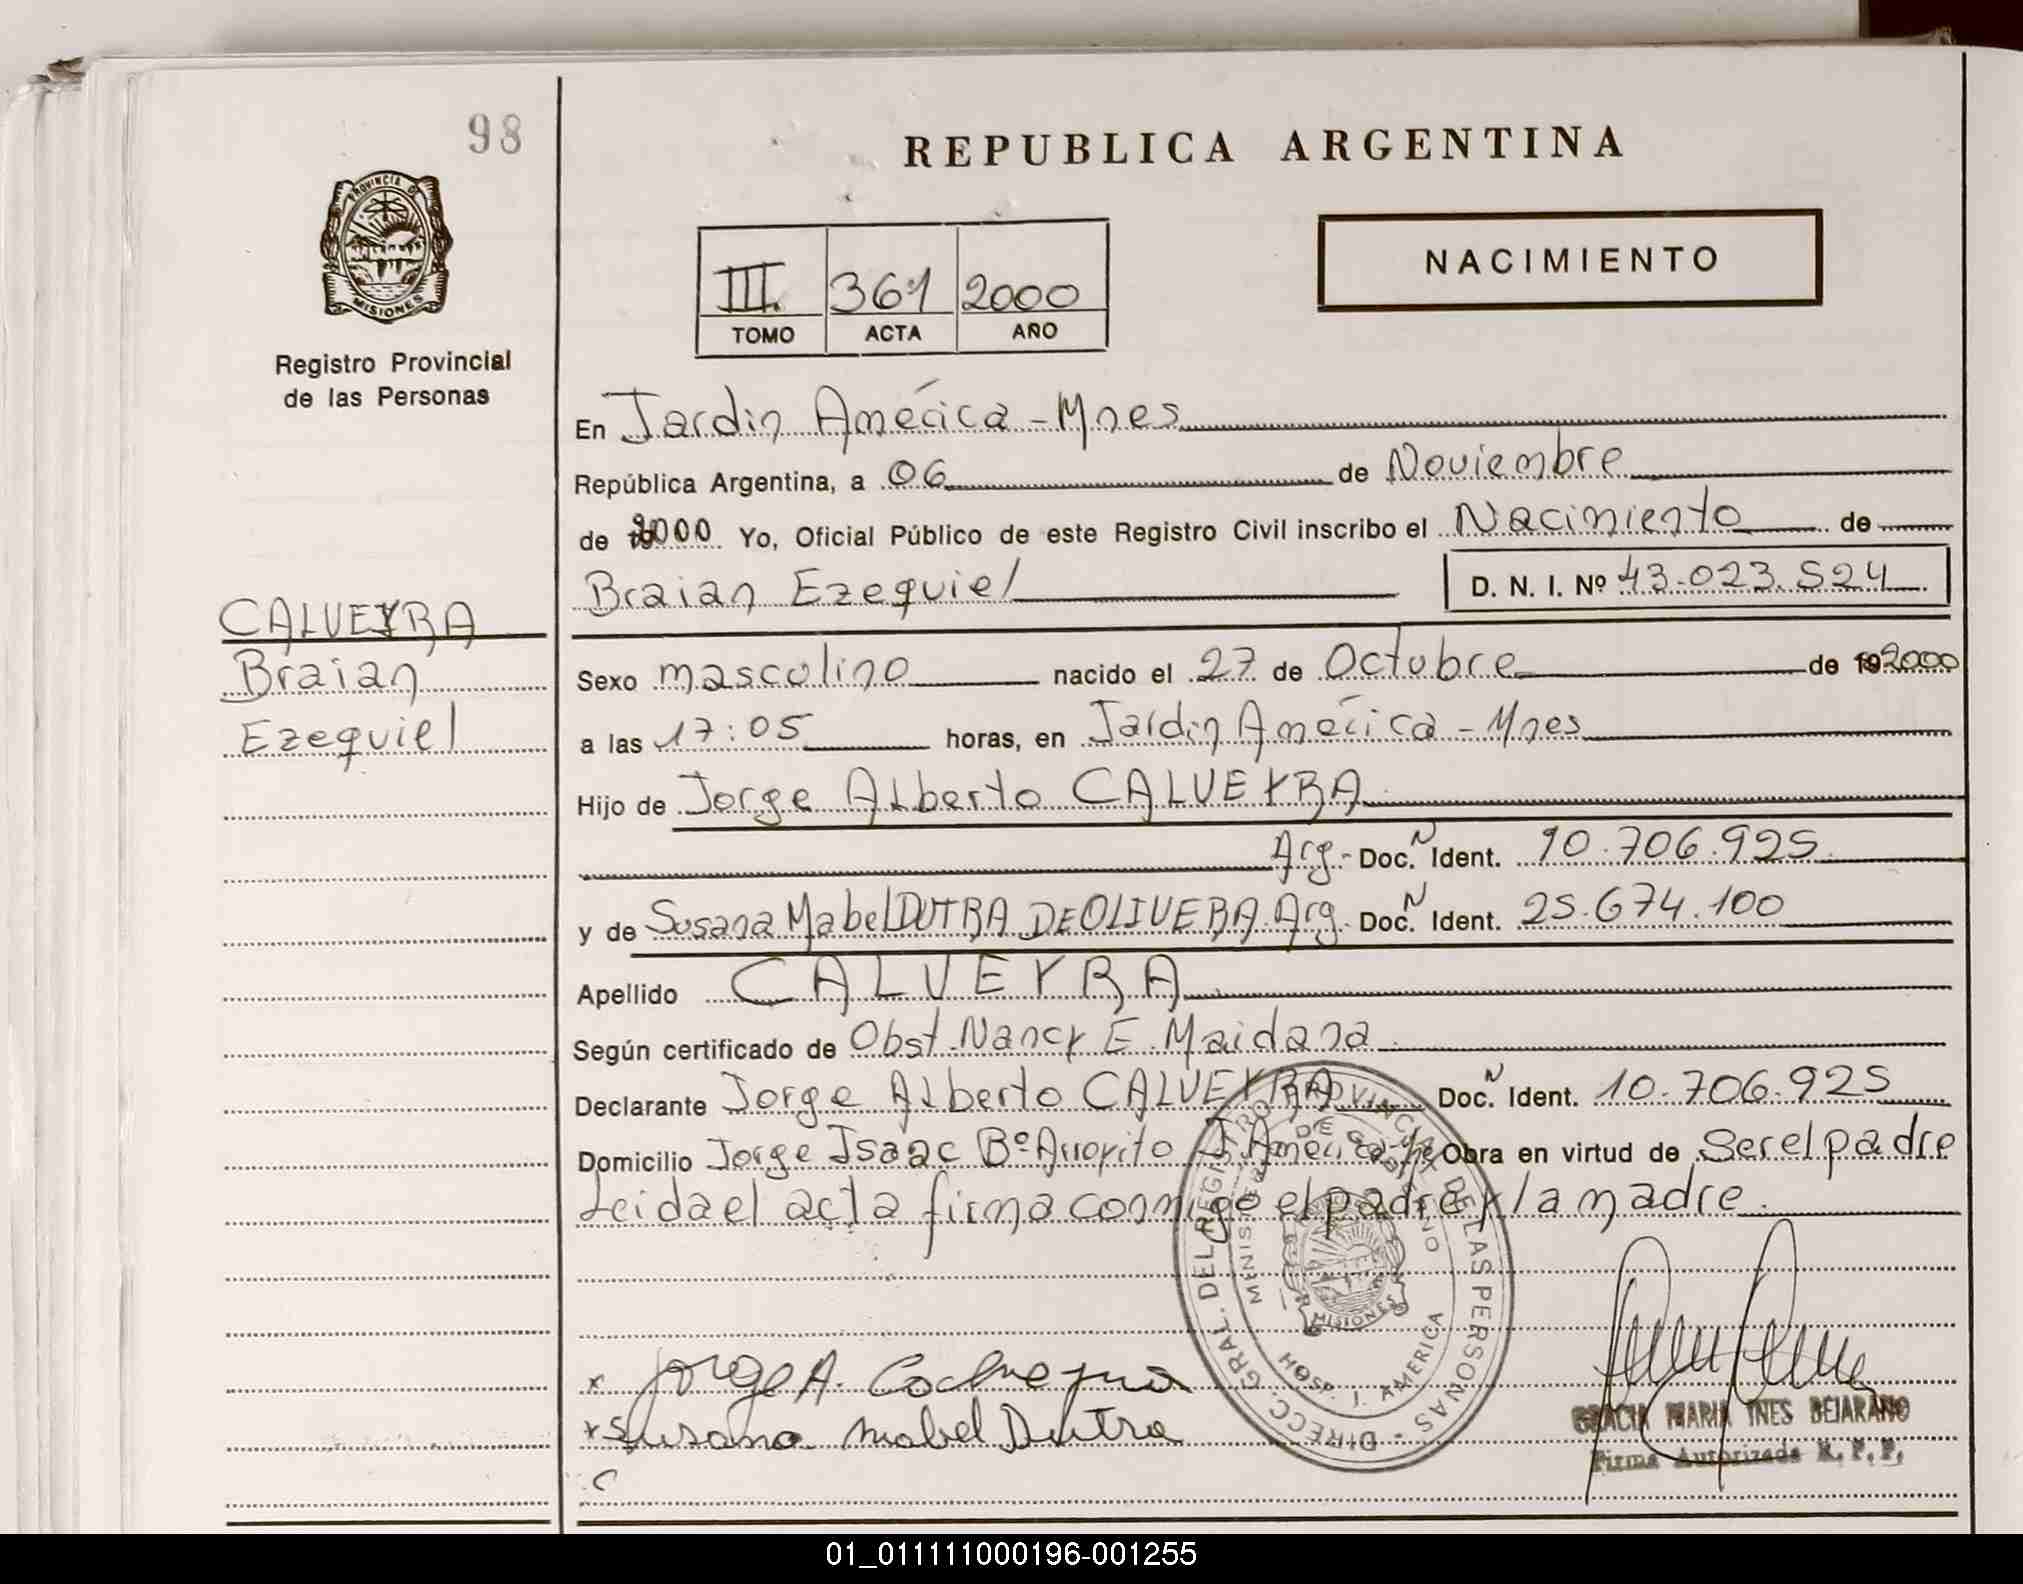 98
REPUBLICA ARGENTINA
PROVINCIA DE
MISIONES
Registro Provincial
de las Personas
III. 361 2000
TOMO ACTA AÑO
NACIMIENTO
En Jardín América - Mnes
República Argentina, a 06 de Noviembre
de 2000 Yo, Oficial Público de este Registro Civil inscribo el Nacimiento de
Braian Ezequiel D. N. I. Nº 43.023.524
CALVEYRA
Braian
Ezequiel
Sexo masculino nacido el 27 de Octubre de 19 2000
a las 17:05 horas, en Jardín América - Mnes
Hijo de Jorge Alberto CALVEYRA
Arg. Doc. N Ident. 10.706.925
y de Susana Mabel DUTRA DE OLIVERA Arg. Doc. N Ident. 25.674.100
Apellido CALVEYRA
Según certificado de Obst. Nancy E. Maidana
Declarante Jorge Alberto CALVEYRA Doc. N Ident. 10.706.925
Domicilio Jorge Isaac Bº Arroyito J. América Obra en virtud de ser el padre
Leida el acta firma conmigo el padre y la madre.
DIRECC. GRAL. DEL REGISTRO PROVINCIAL DE LAS PERSONAS
MINISTERIO DE GOBIERNO
MISIONES
HOSP. J. AMERICA
x Jorge A. Calveyra
x Susana Mabel Dutra
GRACIA MARIA INES BEJARANO
Firma Autorizada R. P. P.
01_011111000196-001255